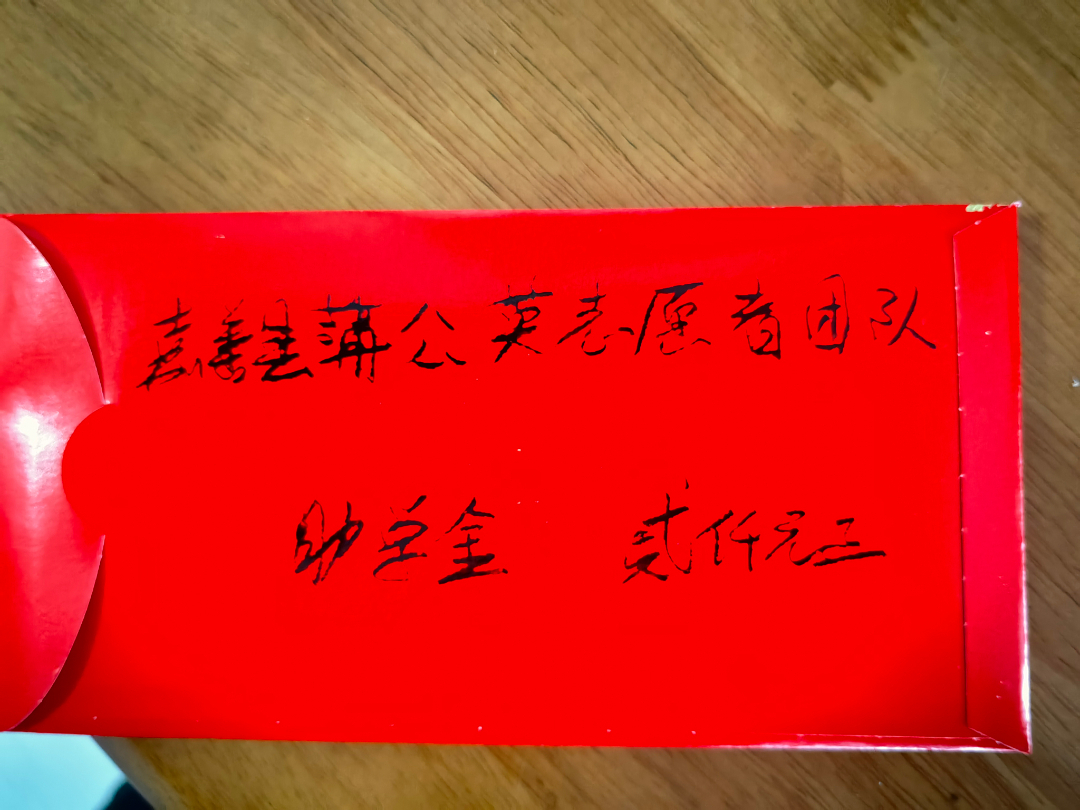 嘉善县蒲公英志愿者团队
助学金 贰仟元正